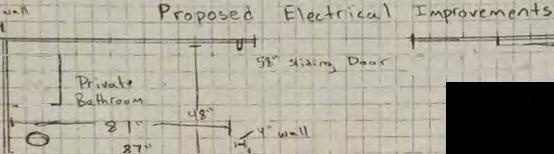 wall
Proposed Electrical Improvements
58" Sliding Door
Private
Bathroom
48"
81"
4" wall
87"